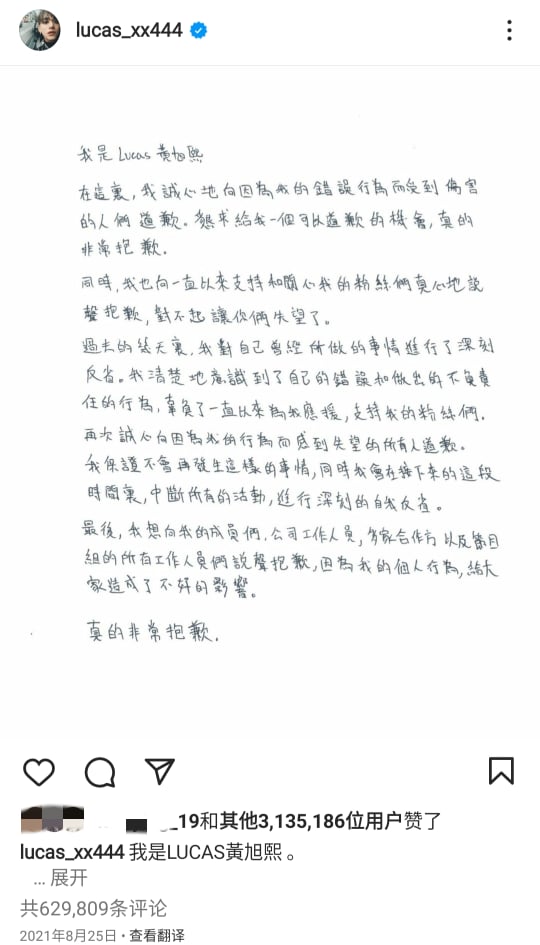 lucas_xx444
我是Lucas 黃旭熙
在這裏，我誠心地向因為我的錯誤行為而受到傷害
的人們道歉。懇求給我一個可以道歉的機會，真的
非常抱歉.
同時，我也向一直以來支持和關心我的粉絲們真心地說
聲抱歉，對不起讓你們失望了。
過去的幾天裏，我對自己曾經所做的事情進行了深刻
反省。我清楚地意識到了自己的錯誤和做出的不負責
任的行為，辜負了一直以來為我應援，支持我的粉絲們.
再次誠心向因為我的行為而感到失望的所有人道歉。
我保證不會再發生這樣的事情，同時我會在接下來的這段
時間裏，中斷所有的活動，進行深刻的自我反省。
最後，我想向我的成員們，公司工作人員，多家合作方以及節目
組的所有工作人員們說聲抱歉，因為我的個人行為，給大
家造成了不好的影響。
真的非常抱歉.
_19和其他3,135,186位用户赞了
lucas_xx444 我是LUCAS黃旭熙 。
... 展开
共629,809条评论
2021年8月25日 · 查看翻译